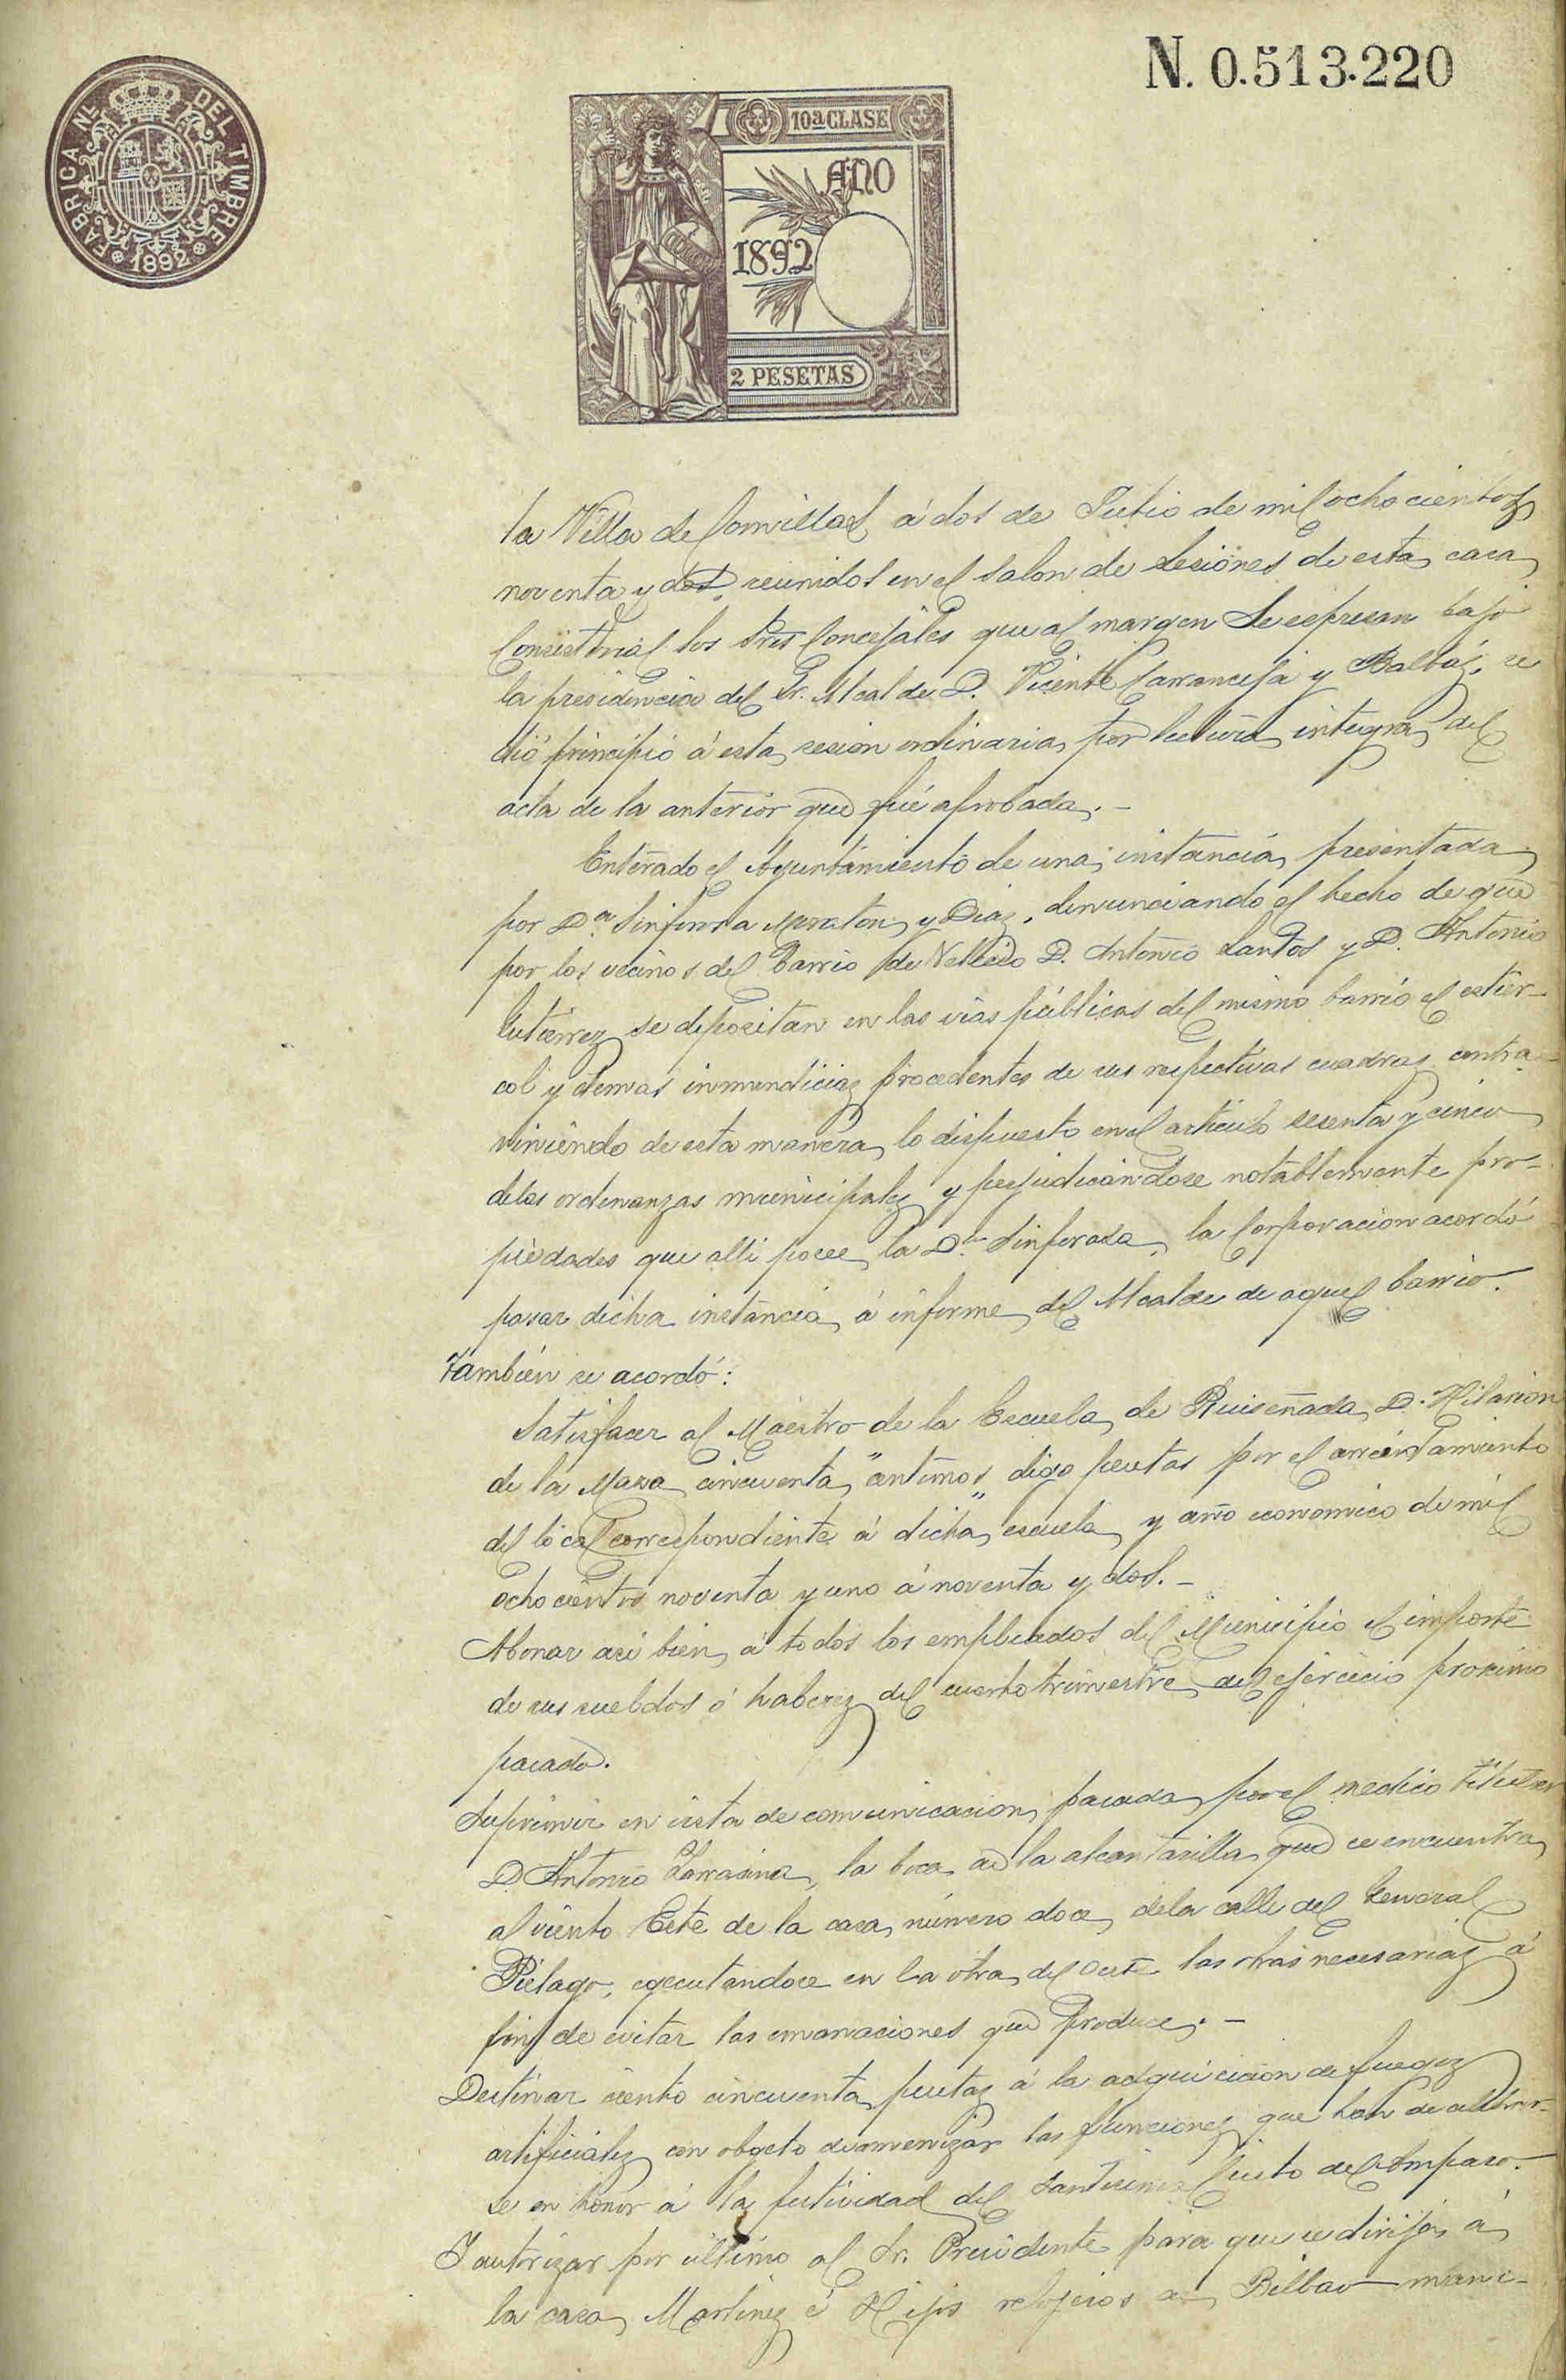 N. 0.513.220
FABRICA NL. DEL TIMBRE
1892
10ª CLASE
AÑO
1892
2 PESETAS
la Villa de Comillas á dos de Julio de mil ochocientos
noventa y dos, reunidos en el salon de sesiones de esta casa
Consistorial los Sres Concejales que al margen se espresan bajo
la presidencia del Sr. Alcalde D. Vicente Carranceja y Balbás, se
dió principio á esta sesion ordinaria por lectura integra del
acta de la anterior que fué aprobada.-
Enterado el Ayuntamiento de una instancia presentada
por Dª. Sinforosa y Diaz, denunciando el hecho de que
por los vecinos del barrio de Velecio D. Antonio Santos y D. Antonio
Gutierrez se depositan en las vias públicas del mismo barrio el estier-
col y demas inmundicias procedentes de sus respectivas cuadras contra-
viniendo de esta manera lo dispuesto en el articulo sesenta y cinco
de las ordenanzas municipales y perjudicandose notablemente pro-
piedades que alli posee la Dª. Sinforosa, la Corporacion acordó
pasar dicha instancia á informe del Alcalde de aquel barrio.
Tambien se acordó:
Satisfacer al Maestro de la Escuela de Ruiseñada D. Hilarion
de la Maza cincuenta "centimos" digo pesetas por el arrendamiento
del local correspondiente á dicha escuela y año economico de mil
ochocientos noventa y uno á noventa y dos.-
Abonar asi bien á todos los empleados del Municipio el importe
de sus sueldos ó haberes del cuarto trimestre del ejercicio proximo
pasado.
Suprimir en vista de comunicacion pasada por el medico titular
D. Antonio, la boca de la alcantarilla que se encuentra
al viento Este de la casa número doce de la calle del General
Piélago, egecutandose en la otra del Oeste las obras necesarias á
fin de evitar las emanaciones que produce.-
Destinar ciento cincuenta pesetas á la adquicicion de fuegos
artificiales con objeto de amenizar las funciones que han de celebrar-
se en honor á la festividad del Santisimo Cristo del Amparo.
Y autorizar por ultimo al Sr. Presidente para que se dirija á
la casa Martinez é Hijos relojeros de Bilbao mani-